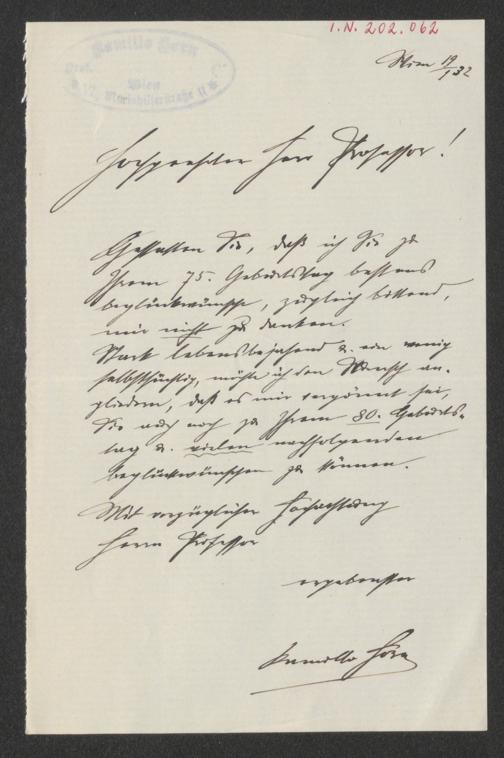 I.N. 202.062
Kamillo Horn
Prof.
Wien
Mariahilferstraße
Wien 19/1 32
Hochgeehrter Herr Professor!
Gestatten Sie, daß ich Sie zu
Ihrem 75. Geburtstag bestens
beglückwünsche, zugleich bittend,
mir nicht zu danken.
Stark lebensbejahend u. ein wenig
selbstsüchtig, möchte ich den Wunsch an-
gliedern, daß es mir vergönnt sei,
Sie auch noch zu Ihrem 80. Geburts-
tag u. vielen nachfolgenden
beglückwünschen zu können.
Mit vorzüglicher Hochachtung
Herrn Professor
ergebenster
Kamillo Horn